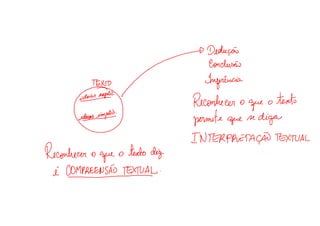 Dedução
Conclusão
Inferência
TEXTO
Reconhecer o que o texto
permite que se diga
INTERPRETAÇÃO TEXTUAL
Reconhecer o que o texto diz
é COMPREENSÃO TEXTUAL.